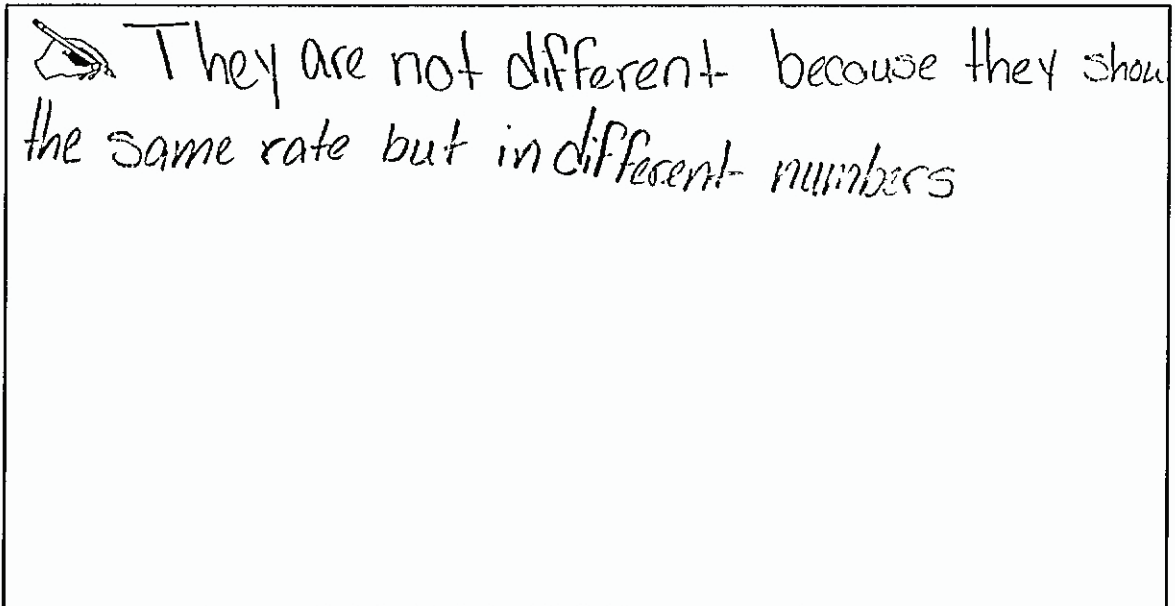 They are not different because they show
the same rate but in different numbers